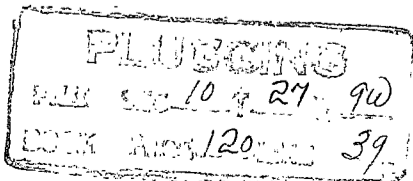 PLUGGING
FILE SEC 10 T 27 R 9W
BOOK PAGE 120 LINE 39